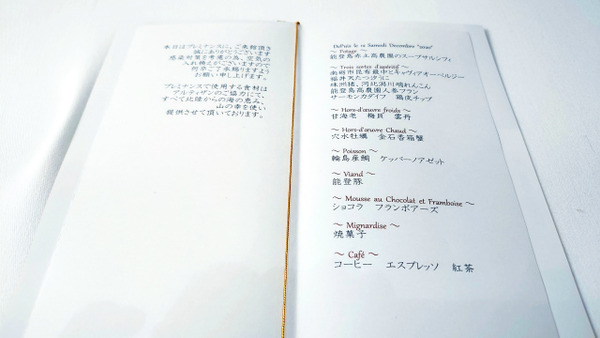 本日はプレミナンスに、ご来館頂き
誠にありがとうございます
感染対策を考慮の為、空気の
入れ換えがございますので
何卒ご了承賜りますよう
お願い申し上げます。
プレミナンスで使用する食材は
アルティザンのご協力にて、
すべて北陸からの海の恵み、
山の幸を使い
提供させて頂いております。
DePrée le 12 Samedi Decembre "2020"
～ Potage ～
能登島赤土高農園のスープサルシフィ
～ Trois sortes d'apéritif ～
南砺市昆布最中とキャヴィアギーベルジー
福井天たつ汐うに
珠洲猪、河北潟川端れんこん
能登島高農園人参フラン
サーモンカダイフ 鶏皮チップ
～ Hors-d'œuvre froids ～
甘海老 梅貝 雲丹
～ Hors-d'œuvre Chaud ～
穴水牡蠣 金石香箱蟹
～ Poisson ～
輪島産鯛 ケッパーノアゼット
～ Viand ～
能登豚
～ Mousse au Chocolat et Framboise ～
ショコラ フランボアーズ
～ Mignardise ～
焼菓子
～ Café ～
コーヒー エスプレッソ 紅茶